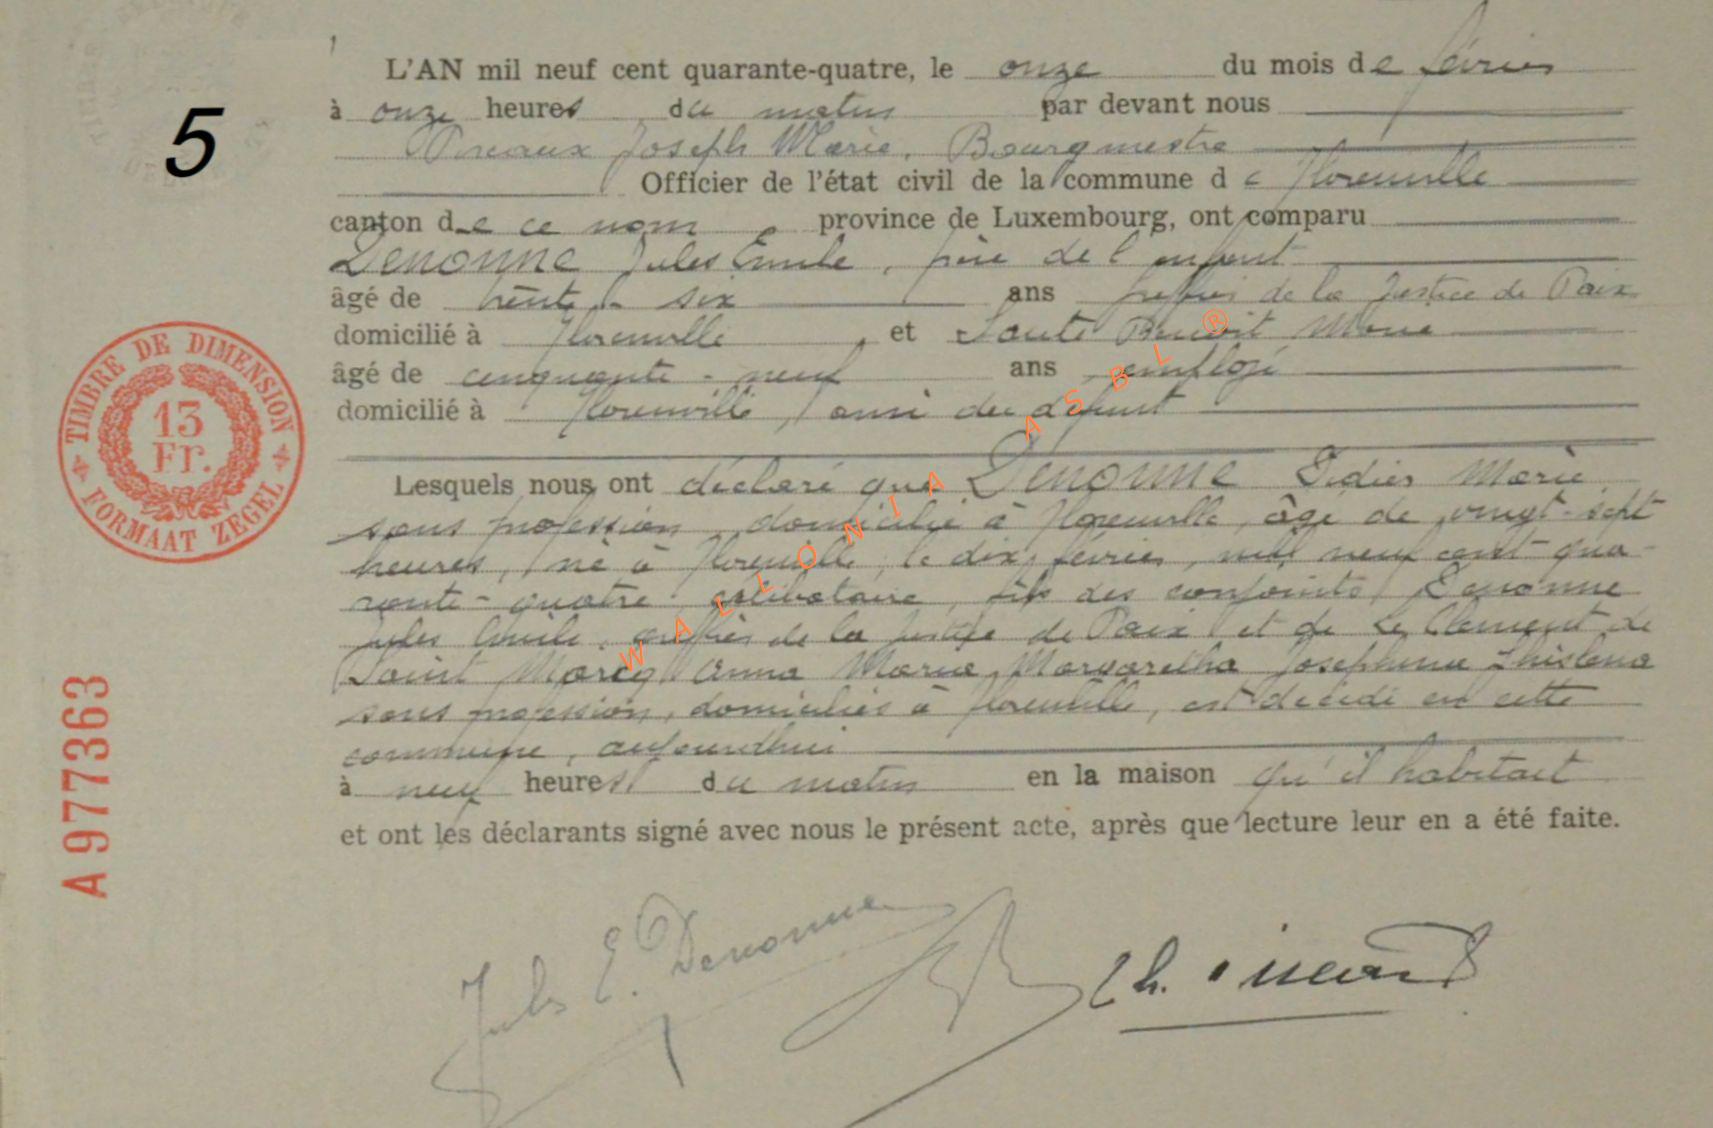 5
L'AN mil neuf cent quarante-quatre, le onze du mois de février
à onze heures du matin par devant nous
Joseph Marie, Bourgmestre
Officier de l'état civil de la commune de Florenville
canton de ce nom province de Luxembourg, ont comparu
Denonne Jules Emile, père de l'enfant
âgé de trente-six ans greffier de la Justice de Paix
domicilié à Florenville et Benoit Marie
âgé de cinquante-neuf ans employé
domicilié à Florenville, ami du défunt
Lesquels nous ont déclaré que Denonne Didier Marie
sans profession, domicilié à Florenville, âgé de vingt-sept
heures, né à Florenville, le dix février, mil neuf cent qua-
rante-quatre célibataire, fils des conjoints Denonne
Jules Emile, greffier de la Justice de Paix et de Le Clément de
Saint Marcq Anna Maria Margaretha Josephina Ghislena
sans profession, domiciliés à Florenville, est décédé en cette
commune, aujourdhui
à neuf heures du matin en la maison qu'il habitait
et ont les déclarants signé avec nous le présent acte, après que lecture leur en a été faite.
Jules E. Denonne
TIMBRE DE DIMENSION
13
Fr.
FORMAAT ZEGEL
A977363
WALLONIA ASBL ®